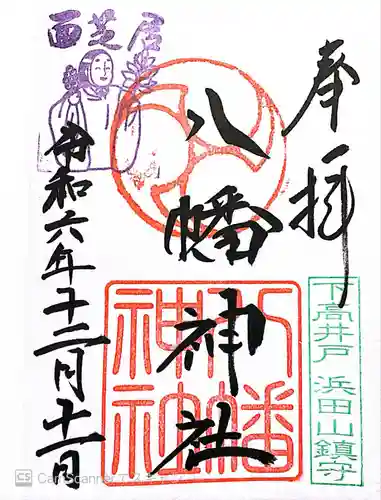 奉拝
八幡神社
令和六年十二月十一日
西芝居
八幡神社
下高井戸 浜田山鎮守
CS CamScannerでスキャン